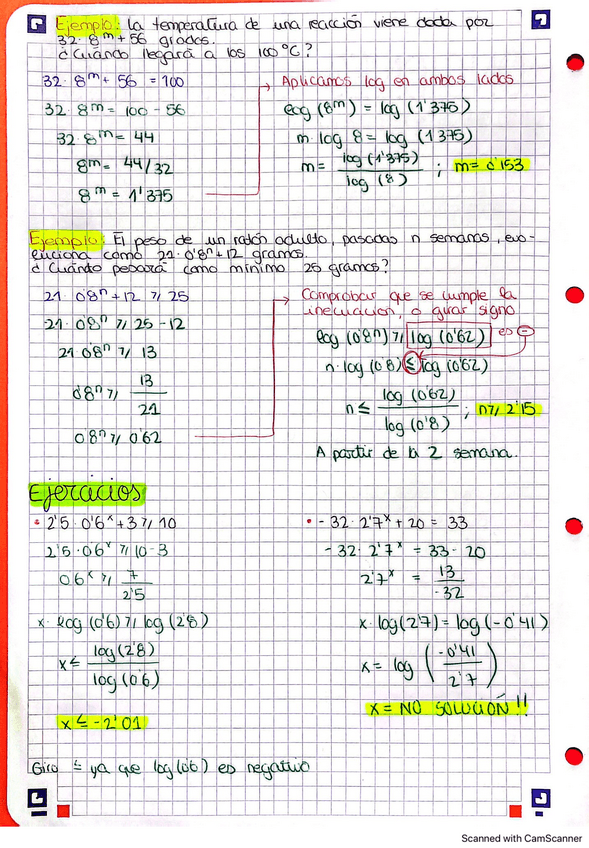 Ejemplo: la temperatura de una reacción viene dada por
32 · 8^m + 56 grados.
¿Cuándo llegará a los 100 °C?
32 · 8^m + 56 = 100
32 · 8^m = 100 - 56
32 · 8^m = 44
8^m = 44/32
8^m = 1'375
Aplicamos log en ambos lados
log (8^m) = log (1'375)
m · log 8 = log (1'375)
m = log (1'375) / log (8) ; m = 0'153
Ejemplo: El peso de un ratón adulto, pasadas n semanas, evo-
luciona como 21 · 0'8^n + 12 gramos.
¿Cuándo pesará como mínimo 25 gramos?
21 · 0'8^n + 12 ≥ 25
21 · 0'8^n ≥ 25 - 12
21 · 0'8^n ≥ 13
0'8^n ≥ 13/21
0'8^n ≥ 0'62
Comprobar que se cumple la
inecuación, o girar signo
log (0'8^n) ≥ log (0'62) es -
n · log (0'8) ≤ log (0'62)
n ≤ log (0'62) / log (0'8) ; n ≥ 2'15
A partir de la 2 semana.
Ejercicios
• 2'5 · 0'6^x + 3 ≥ 10
2'5 · 0'6^x ≥ 10 - 3
0'6^x ≥ 7/2'5
x · log (0'6) ≥ log (2'8)
x ≤ log (2'8) / log (0'6)
x ≤ -2'01
Giro ≤ ya que log (0'6) es negativo
• -32 · 2'7^x + 20 = 33
-32 · 2'7^x = 33 - 20
2'7^x = 13/-32
x · log (2'7) = log (-0'41)
x = log (-0'41/2'7)
x = NO SOLUCIÓN !!
Scanned with CamScanner